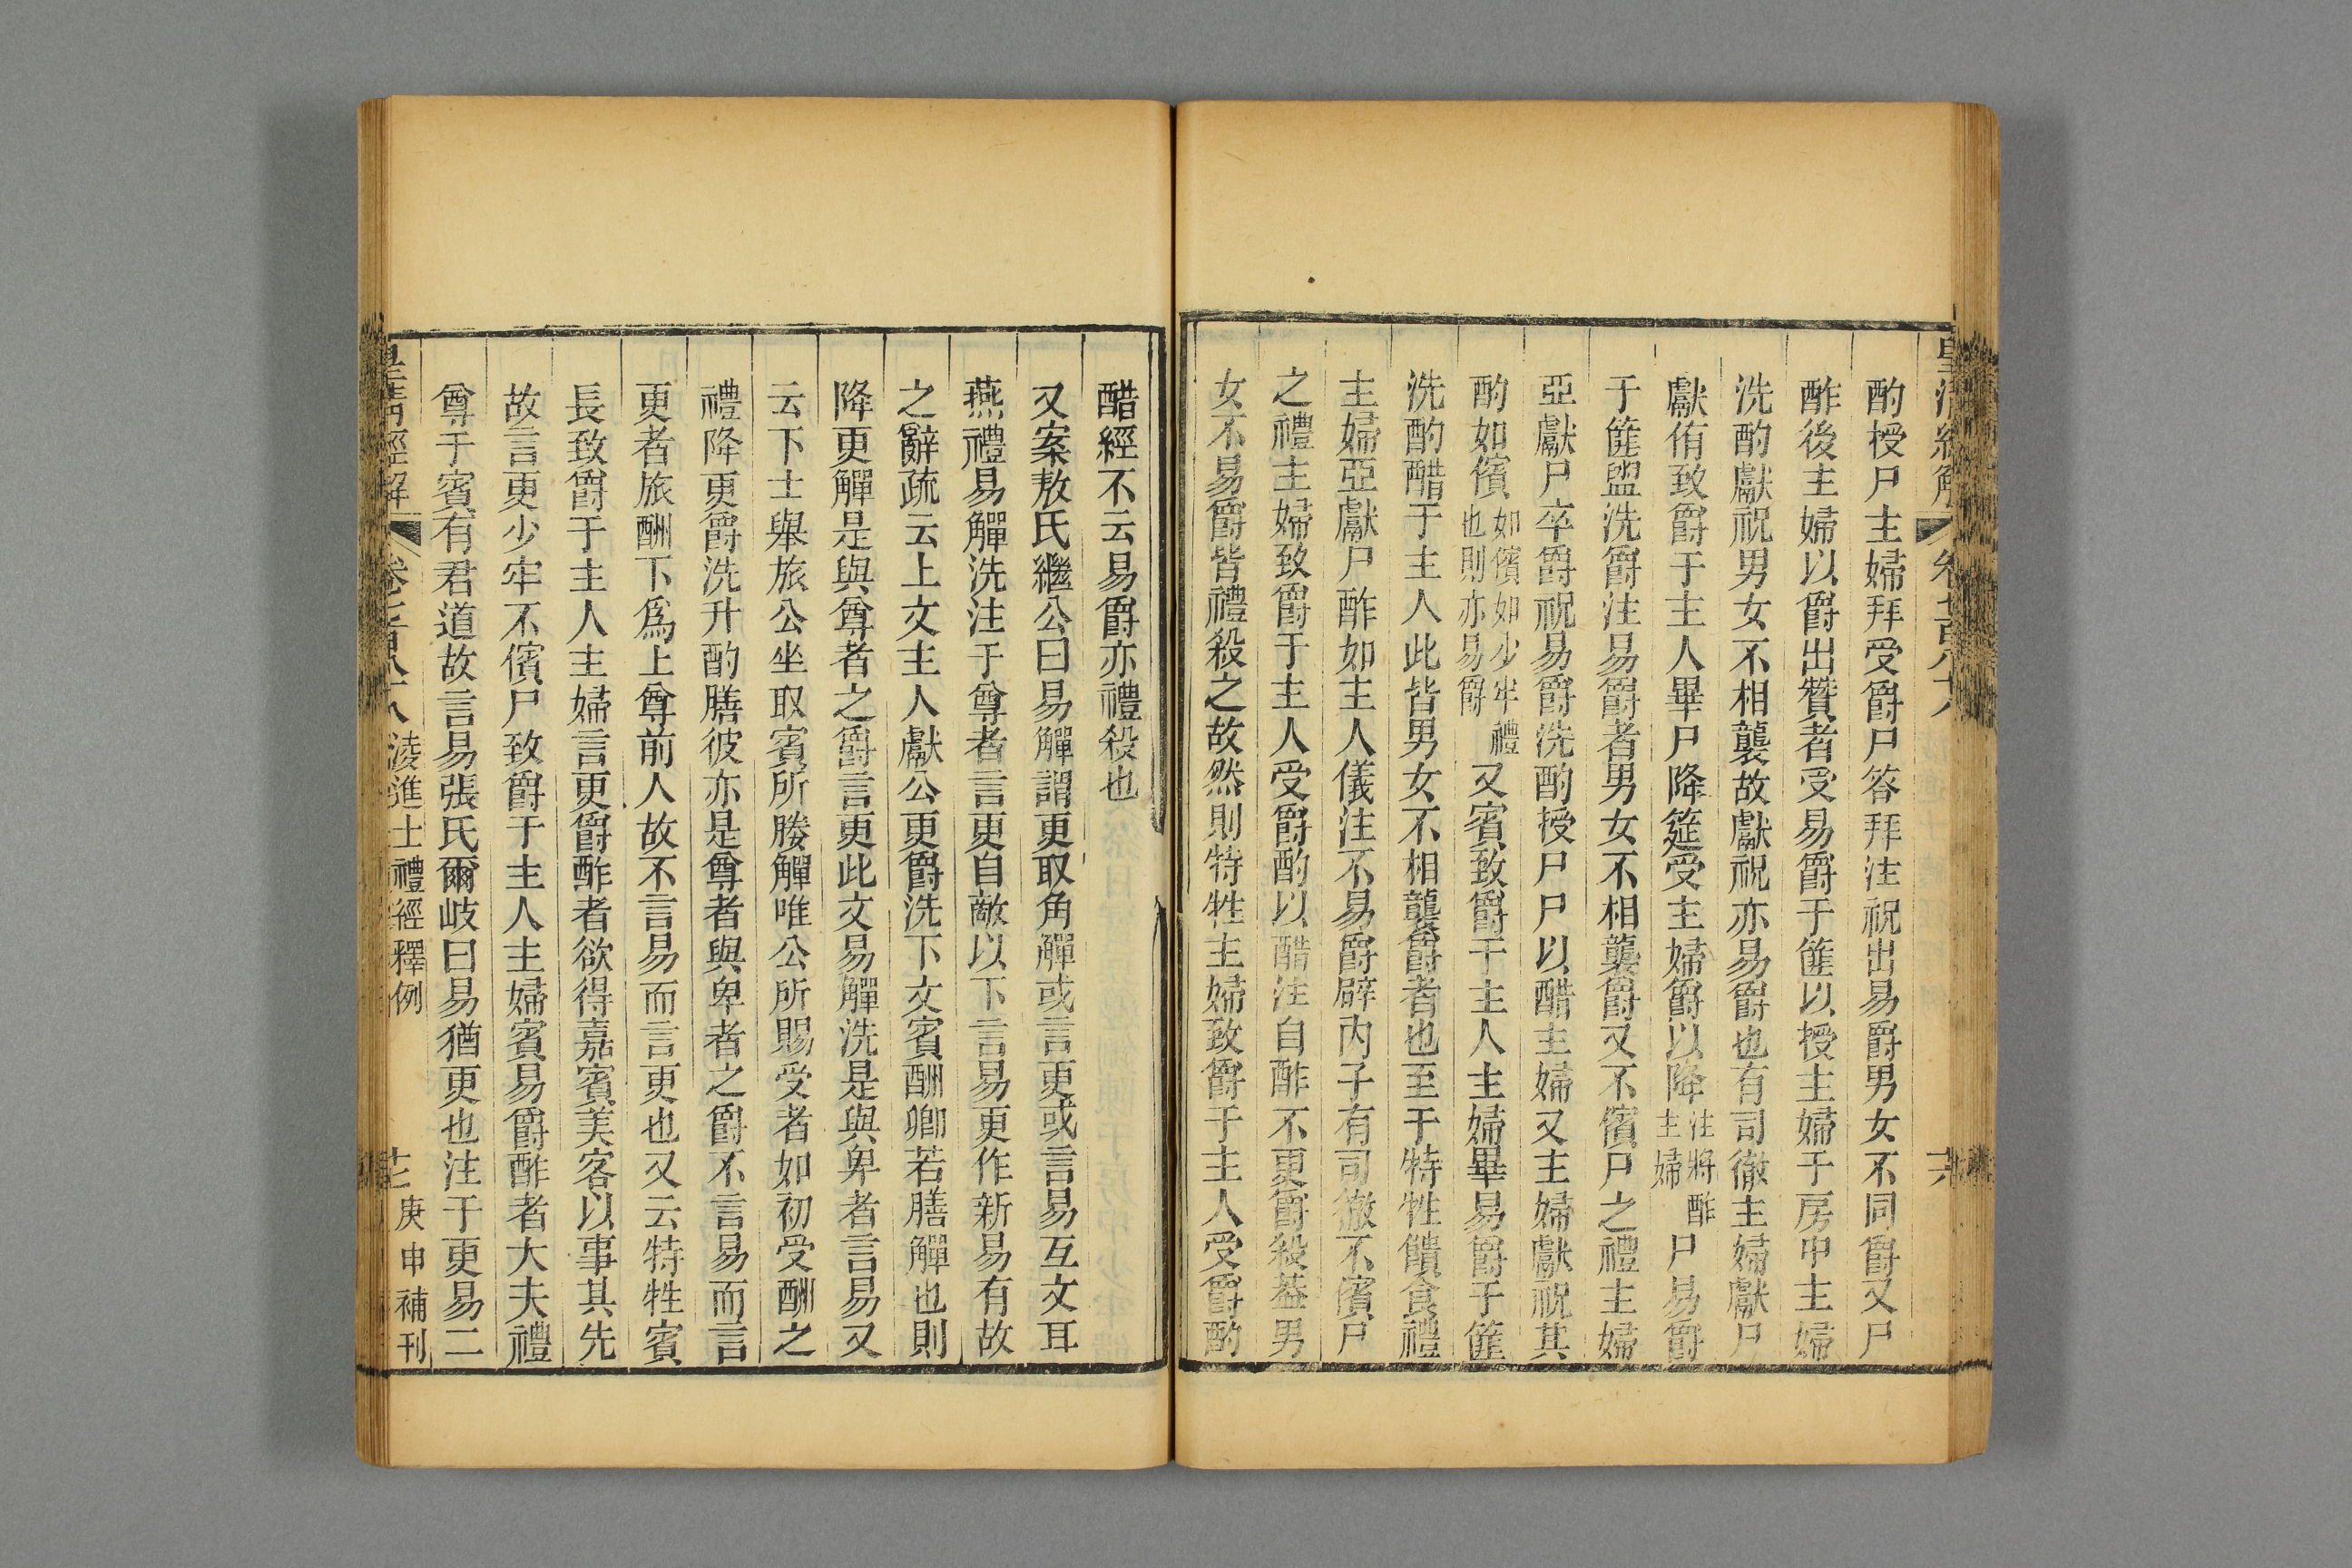 酌授尸主婦拜受爵尸答拜注祝出易爵男女不同爵又尸
酢後主婦以爵出贊者受易爵于篚以授主婦于房中主婦
洗酌獻祝男女不相襲故獻祝亦易爵也有司徹主婦獻尸
獻侑致爵于主人畢尸降筵受主婦爵以降注將酢主婦尸易爵
于篚盥洗爵注易爵者男女不相襲爵又不儐尸之禮主婦
亞獻尸卒爵祝易爵洗酌授尸尸以醋主婦又主婦獻祝其
酌如儐如儐如少牢禮也則亦易爵又賓致爵于主人主婦畢易爵于篚
洗酌醋于主人此皆男女不相襲爵者也至于特牲饋食禮
主婦亞獻尸酢如主人儀注不易爵辟內子有司徹不儐尸
之禮主婦致爵于主人受爵酌以醋注自酢不更爵殺蓋男
女不易爵皆禮殺之故然則特牲主婦致爵于主人受爵酌
醋經不云易爵亦禮殺也
又案敖氏繼公曰易觶謂更取角觶或言更或言易互文耳
燕禮易觶洗注于尊者言更自敵以下言易更作新易有故
之辭疏云上文主人獻公更爵洗下文賓酬卿若膳觶也則
降更觶是與尊者之爵言更此文易觶洗是與卑者言易又
云下士舉旅公坐取賓所媵觶唯公所賜受者如初受酬之
禮降更爵洗升酌膳彼亦是尊者與卑者之爵不言易而言
更者旅酬下為上尊前人故不言易而言更也又云特牲賓
長致爵于主人主婦言更爵酢者欲得嘉賓美客以事其先
故言更少牢不儐尸致爵于主人主婦賓易爵酢者大夫禮
尊于賓有君道故言易張氏爾岐曰易猶更也注于更易二
皇清經解
淩進士禮經釋例
庚申補刊